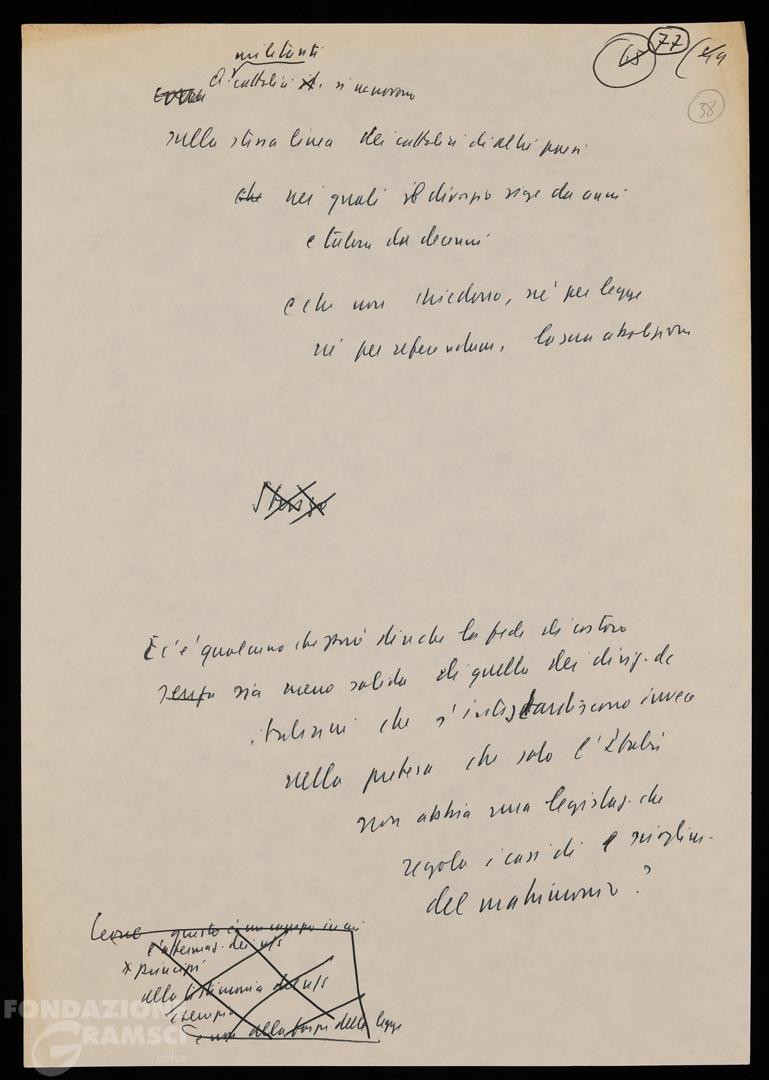 militanti
68 77
cattolici it. si muovono
38
sulla stessa linea dei cattolici di altri paesi
che nei quali il divorzio vige da anni
e talora da decenni
e che non chiedono, né per legge
né per referendum, la sua abolizione
Stesso
E c'è qualcuno che può dire che la fede di costoro
senza sia meno salda di quella dei dirig. dc
italiani che s'intestardiscono invece
nella pretesa che solo l'Italia
non abbia una legislaz. che
regola i casi di scioglim.
del matrimonio?
Leone questo è un campo in cui
l'affermaz. dei n/s
principi
alla testimonianza dei n/s
esempio
e non alla forza della legge
FONDAZIONE
GRAMSCI
onlus